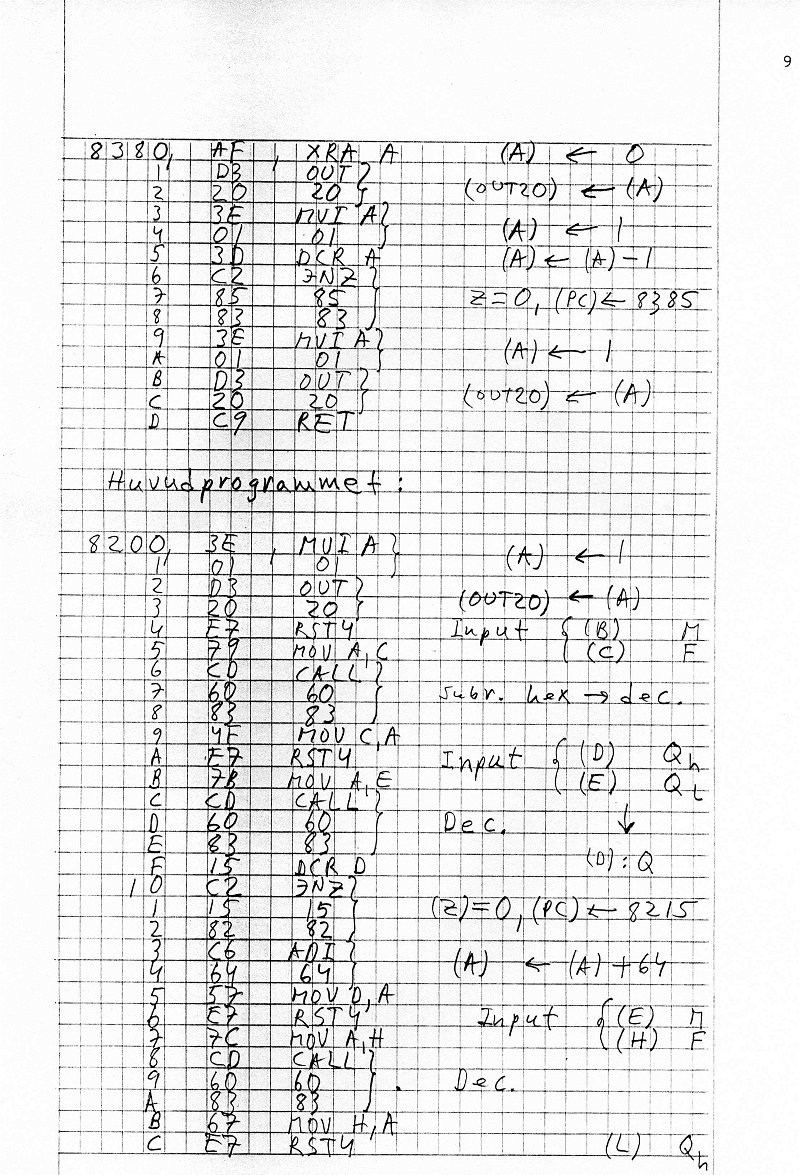 9
8380, AF , XRA A (A) ← 0
1 D3 OUT }
2 20 20 } (OUT20) ← (A)
3 3E MVI A }
4 01 01 } (A) ← 1
5 3D DCR A (A) ← (A) - 1
6 C2 JNZ }
7 85 85 } Z=0, (PC) ← 8385
8 83 83 }
9 3E MVI A }
A 01 01 } (A) ← 1
B D3 OUT }
C 20 20 } (OUT20) ← (A)
D C9 RET
Huvudprogrammet:
8200, 3E , MVI A }
1 01 01 } (A) ← 1
2 D3 OUT }
3 20 20 } (OUT20) ← (A)
4 E7 RST4 Input { (B) M
5 79 MOV A,C { (C) F
6 CD CALL }
7 60 60 } Subr. hex → dec.
8 83 83 }
9 4F MOV C,A
A E7 RST4 Input { (D) Qh
B 7B MOV A,E { (E) QL
C CD CALL }
D 60 60 } Dec. ↓
E 83 83 }
F 15 DCR D (D): Q
10 C2 JNZ }
1 15 15 } (Z)=0, (PC) ← 8215
2 82 82 }
3 C6 ADI }
4 64 64 } (A) ← (A) + 64
5 57 MOV D,A
6 E7 RST4 Input { (E) M
7 7C MOV A,H { (H) F
8 CD CALL }
9 60 60 } . Dec.
A 83 83 }
B 67 MOV H,A
C E7 RST4 (L) Qh